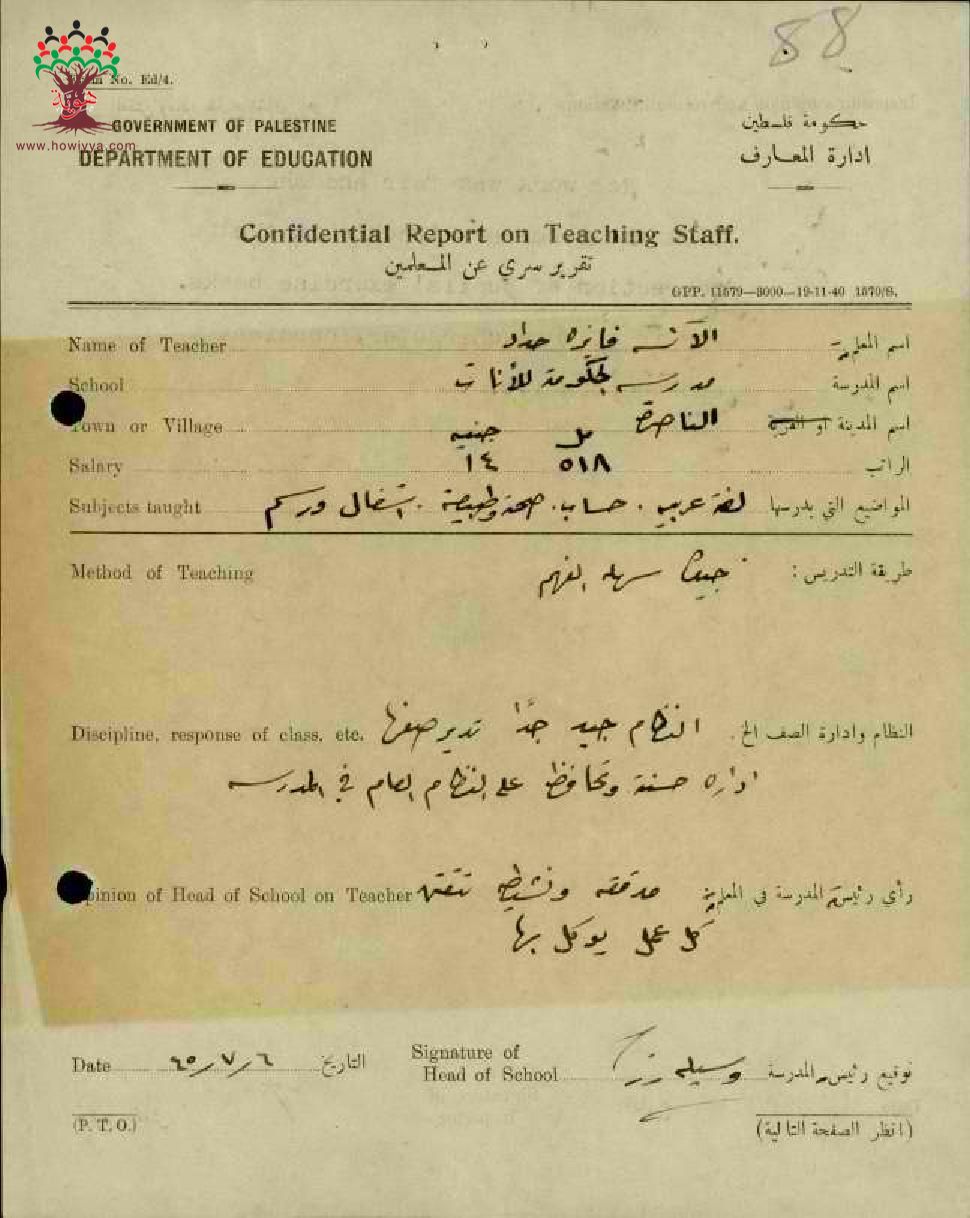 88
Form No. Ed/4.
www.howiyya.com
GOVERNMENT OF PALESTINE
حكومة فلسطين
DEPARTMENT OF EDUCATION
ادارة المعارف
Confidential Report on Teaching Staff.
تقرير سري عن المعلمين
GPP. 11579—3000—19-11-40 1570/S.
Name of Teacher الآنسه فايزه حداد اسم المعلمة
School مدرسه الحكومة للأناث اسم المدرسة
Town or Village الناصرة اسم المدينة او القرية
جنيه مل
Salary ١٤ ٥١٨ الراتب
Subjects taught لغة عربيه . حساب . صحة وطبيعة . اشغال ورسم المواضيع التي يدرسها
Method of Teaching جيدة سهله الفهم طريقة التدريس :
Discipline, response of class, etc. النظام جيد جدًا تدير صفها النظام وادارة الصف الخ.
اداره حسنة وتحافظ على النظام العام في المدرسه
Opinion of Head of School on Teacher مدققه ونشيطه تتقن رأي رئيسة المدرسة في المعلمة
كل عمل يوكل بها
Date ٤٥/٧/٦ التاريخ Signature of
Head of School وسيله توقيع رئيسة المدرسة
(P. T. O.) (انظر الصفحة التالية)